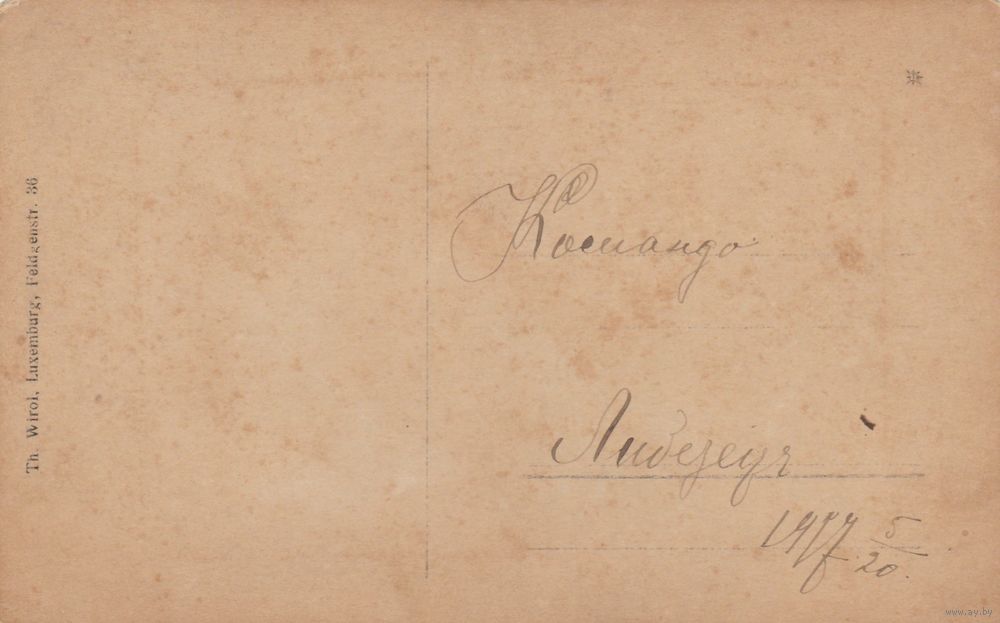 Th. Wirol, Luxemburg, Feldgenstr. 36
Командо
1917 5/20.
www.ay.by